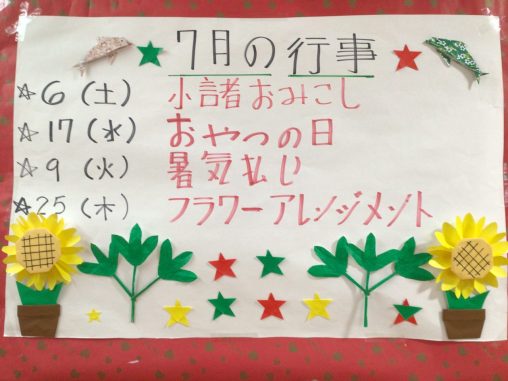 7月の行事
☆6(土) 小諸おみこし
☆17(水) おやつの日
☆9(火) 暑気払い
☆25(木) フラワーアレンジメント